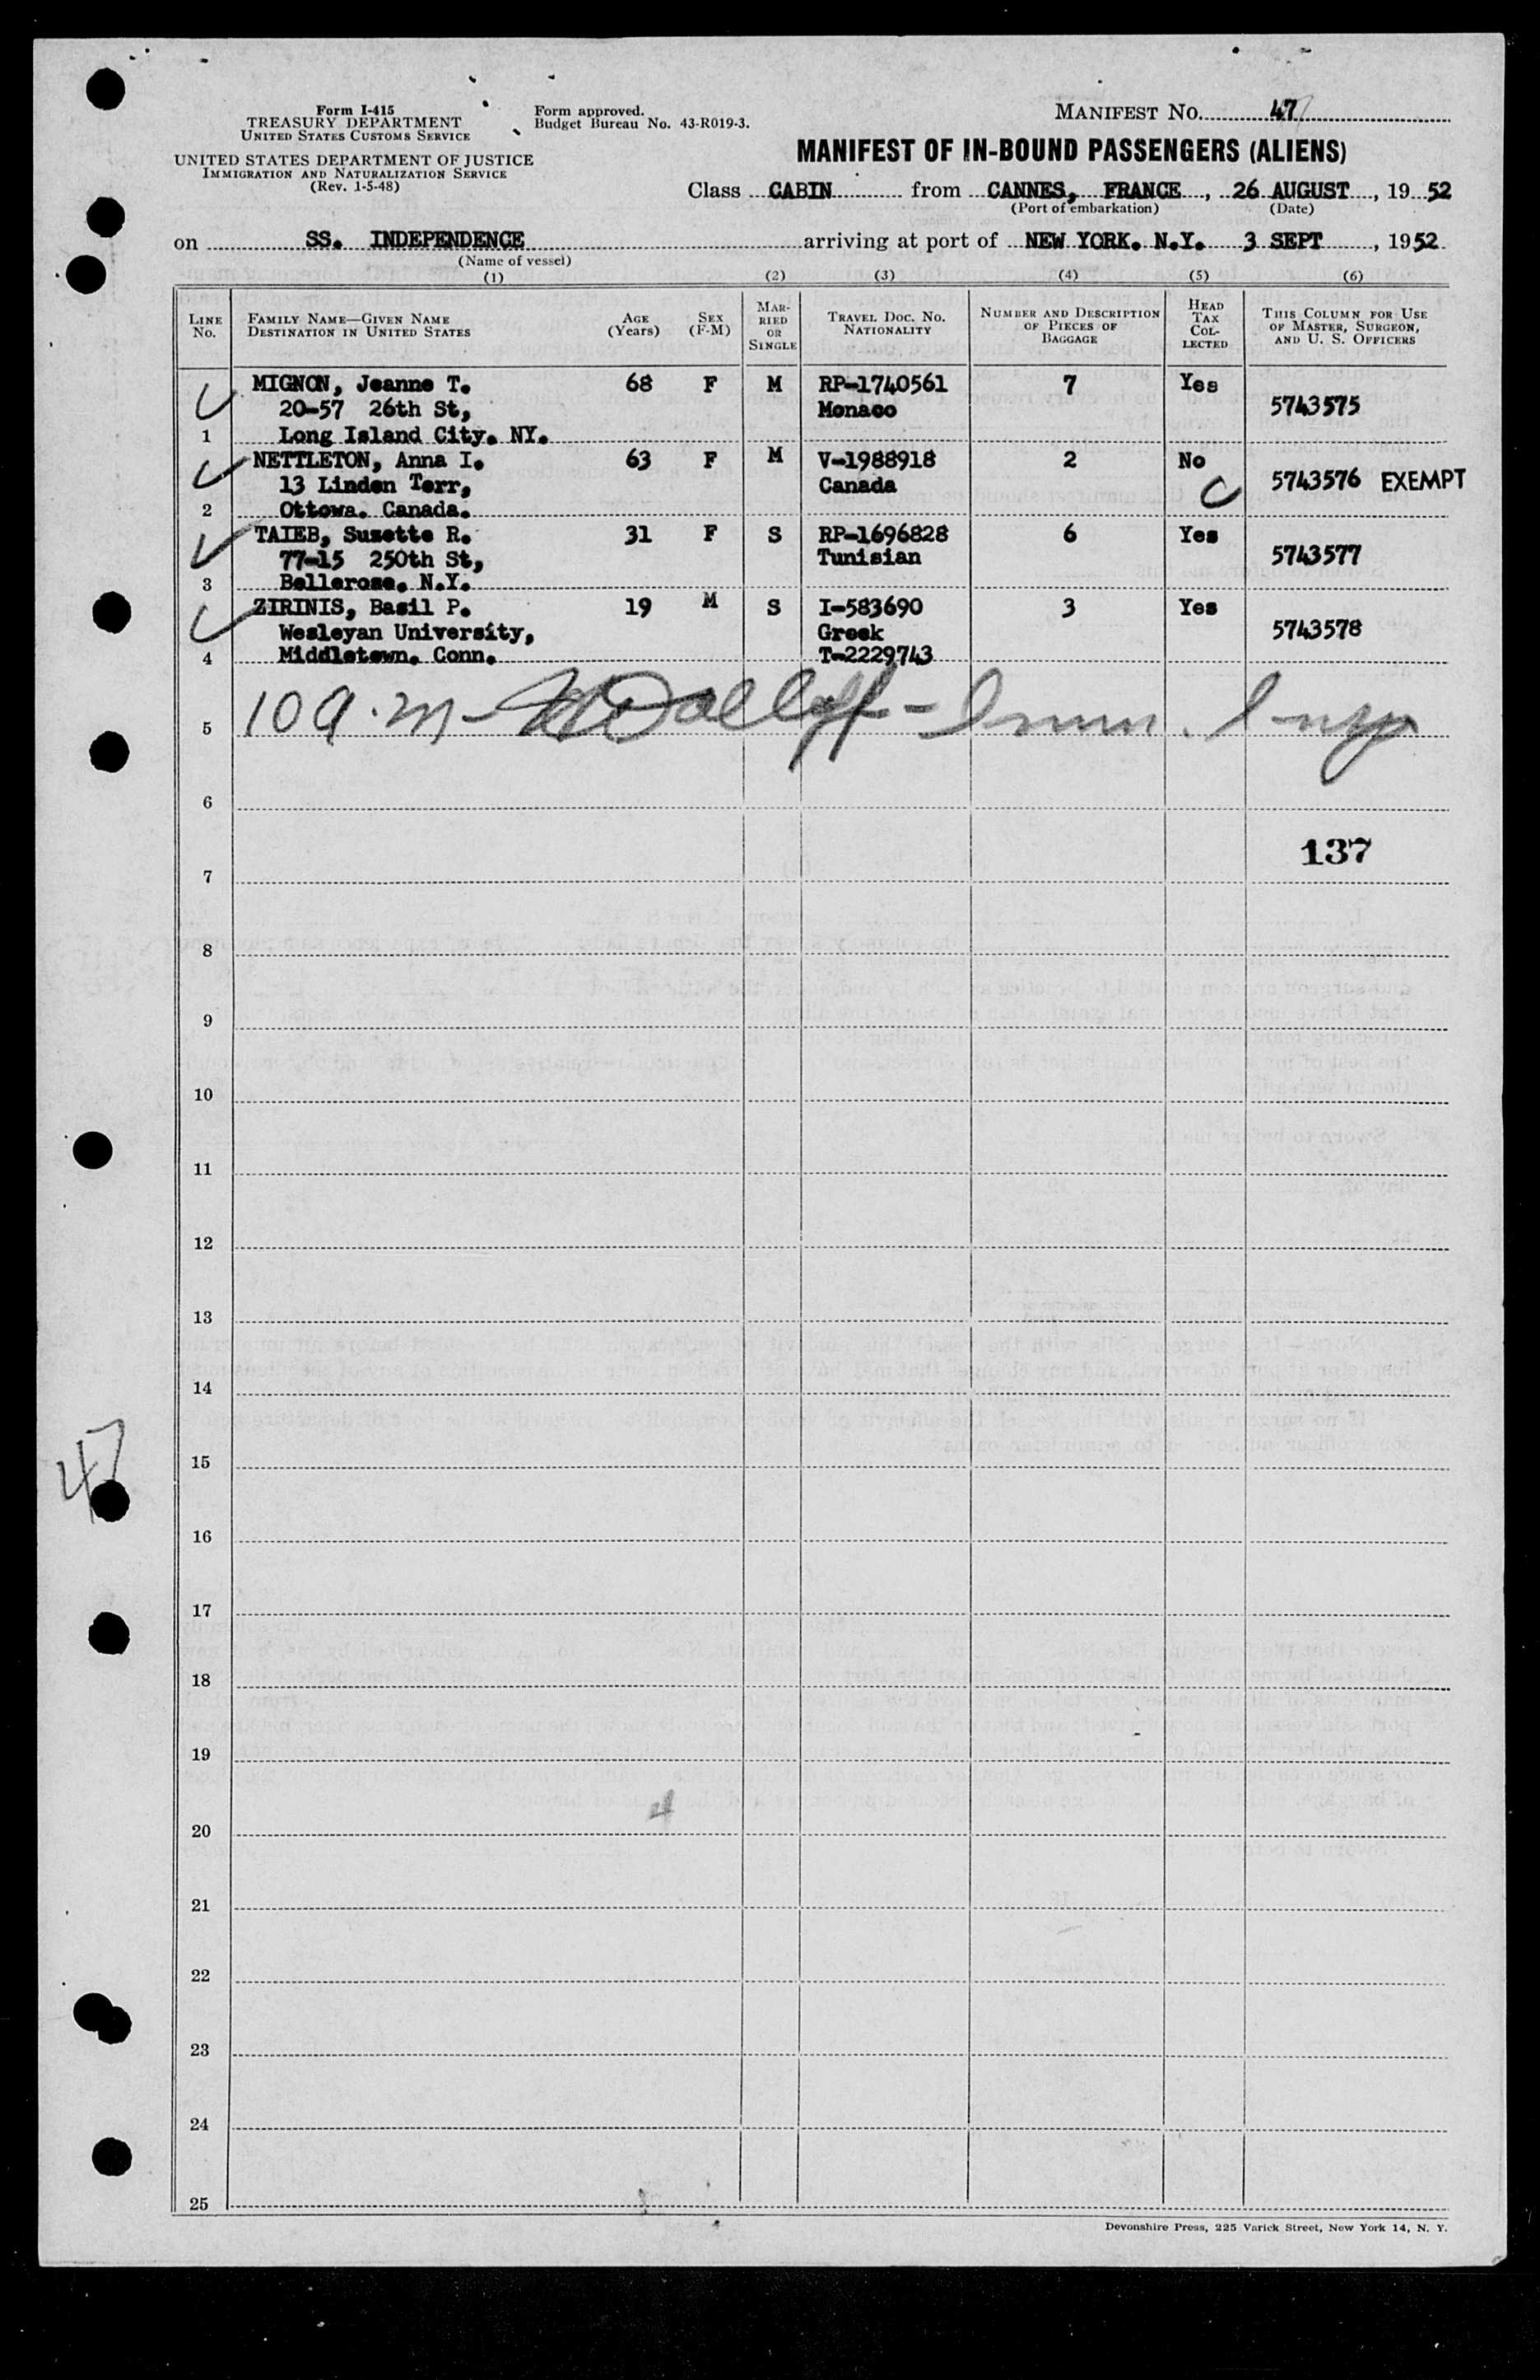 Form I-415
TREASURY DEPARTMENT
UNITED STATES CUSTOMS SERVICE
UNITED STATES DEPARTMENT OF JUSTICE
IMMIGRATION AND NATURALIZATION SERVICE
(Rev. 1-5-48)
Form approved.
Budget Bureau No. 43-R019-3.
MANIFEST NO. 47
MANIFEST OF IN-BOUND PASSENGERS (ALIENS)
Class CABIN from CANNES, FRANCE, 26 AUGUST, 1952
(Port of embarkation) (Date)
on SS. INDEPENDENCE arriving at port of NEW YORK. N.Y. 3 SEPT, 1952
(Name of vessel)
(1) (2) (3) (4) (5) (6)
LINE No. FAMILY NAME—GIVEN NAME DESTINATION IN UNITED STATES AGE (Years) SEX (F-M) MARRIED OR SINGLE TRAVEL DOC. NO. NATIONALITY NUMBER AND DESCRIPTION OF PIECES OF BAGGAGE HEAD TAX COLLECTED THIS COLUMN FOR USE OF MASTER, SURGEON, AND U. S. OFFICERS
MIGNON, Jeanne T. 68 F M RP-1740561 7 Yes
20-57 26th St, Monaco 5743575
1 Long Island City. NY.
NETTLETON, Anna I. 63 F M V-1988918 2 No
13 Linden Terr, Canada C 5743576 EXEMPT
2 Ottowa. Canada.
TAIEB, Suzette R. 31 F S RP-1696828 6 Yes
77-15 250th St, Tunisian 5743577
3 Bellerose. N.Y.
ZIRINIS, Basil P. 19 M S I-583690 3 Yes
Wesleyan University, Greek 5743578
4 Middletown. Conn. T-2229743
5 10 a.m - Imm. Insp
6
137
7
8
9
10
11
12
13
14
47
15
16
17
18
19
4
20
21
22
23
24
25
Devonshire Press, 225 Varick Street, New York 14, N. Y.